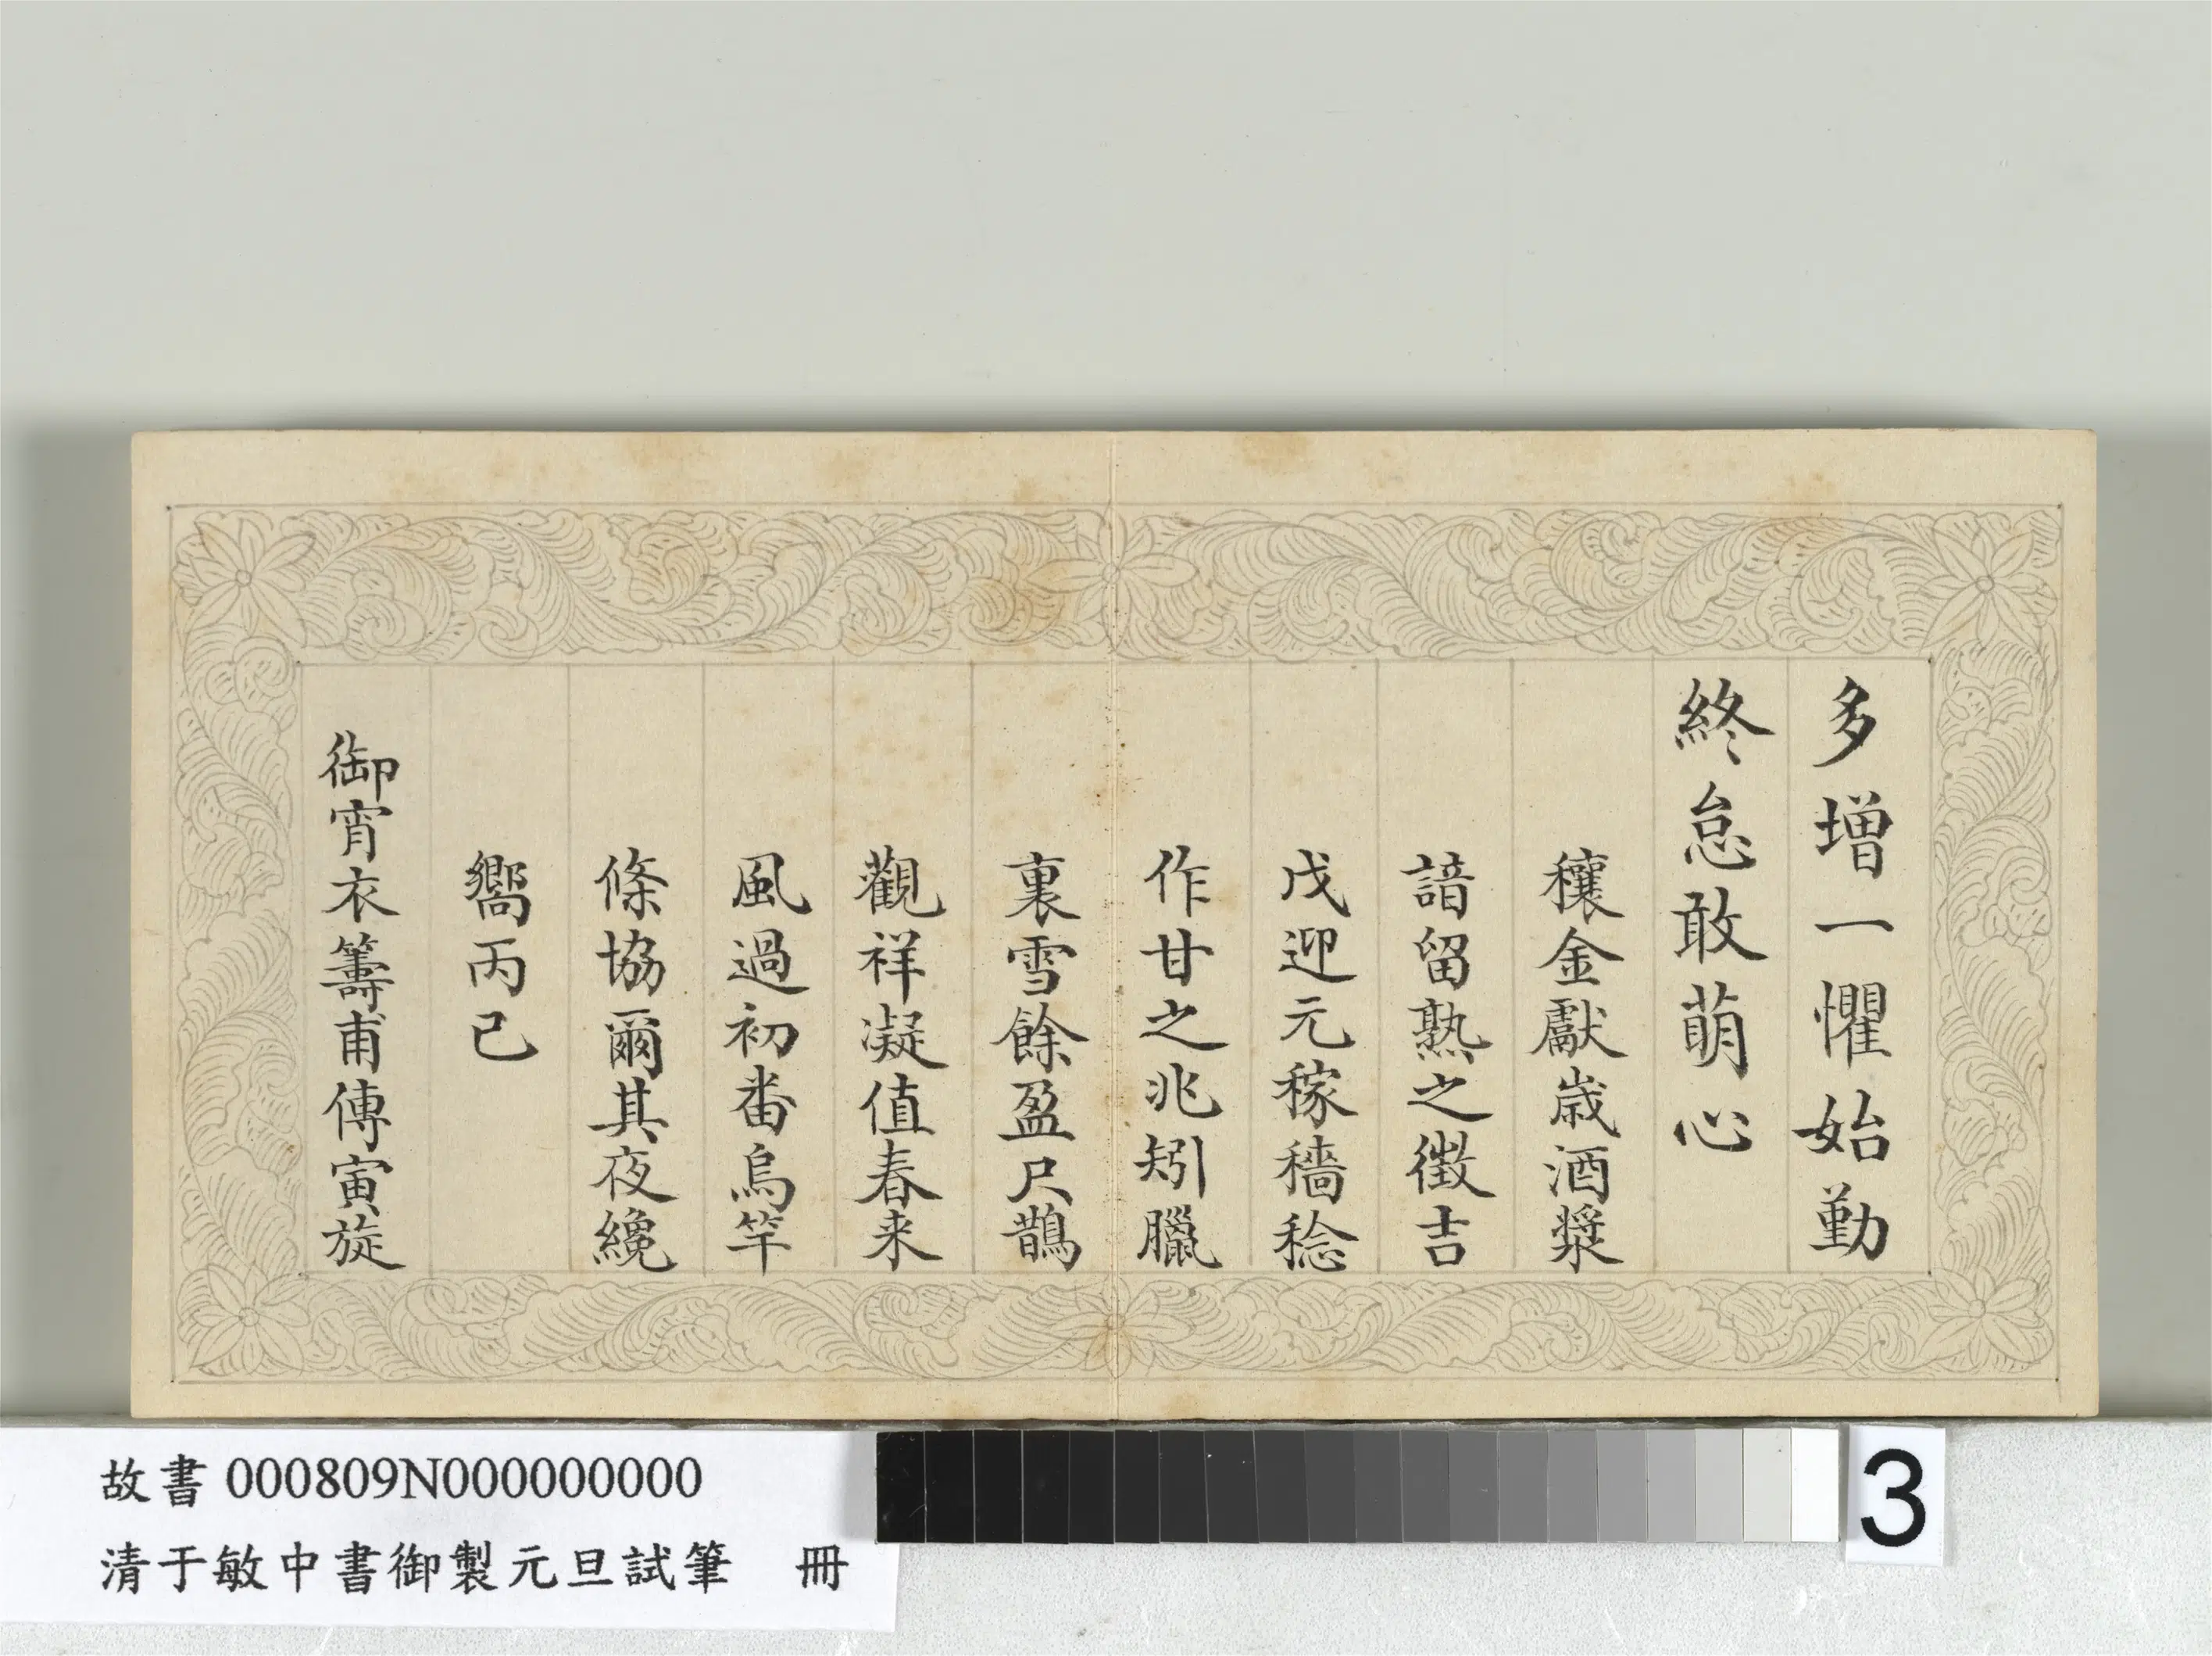 多增一懼始勤
終怠敢萌心
穰金獻歲酒漿
諳留熟之徵吉
戊迎元稼穡稔
作甘之兆矧臘
裏雪餘盈尺鵲
觀祥凝值春来
風過初番烏竿
條協爾其夜纔
嚮丙已
御宵衣籌甫傳寅旋
故書 000809N000000000
清于敏中書御製元旦試筆 冊
3